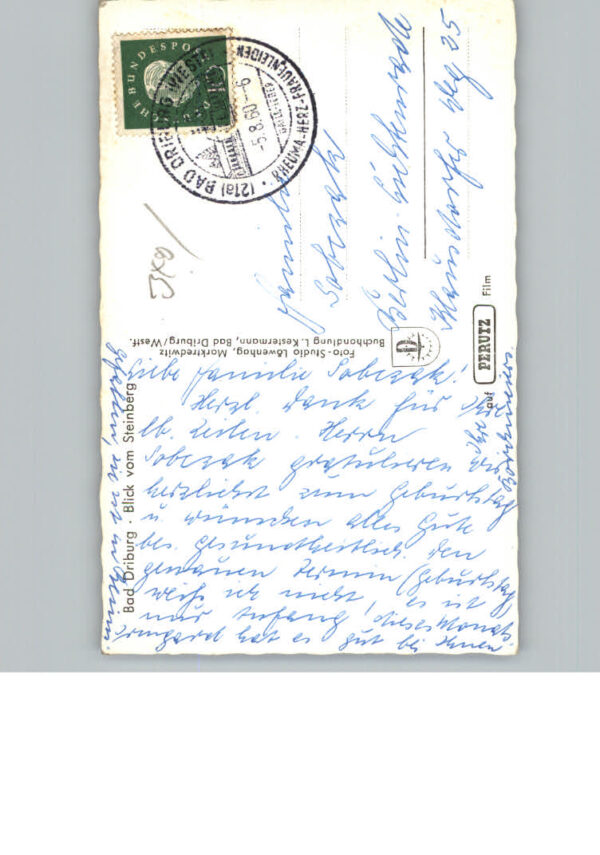 Liebe Familie Sobczak!
Herzl. Dank für Ihre
lb. Zeilen. Herrn
Sobczak gratulieren wir
herzlichst zum Geburtstag
u. wünschen alles Gute
bes. gesundheitlich. Den
genauen Termin (Geburtstag)
weiß ich nicht, es ist
nur Anfang dieses Monats.
Irmgard hat es gut bei Ihnen
gefallen,
Ihre
Familie
Sobczak
Berlin-
Klausdorfer Weg 35
Bad Driburg · Blick vom Steinberg
Foto-Studio Löwenhag, Marktredwitz
Buchhandlung L. Kestermann, Bad Driburg/Westf.
auf PERUTZ Film
(21a) BAD DRIBURG WESTF
-5.8.60.-6
RHEUMA-HERZ-FRAUENLEIDEN
HE BUNDESPO